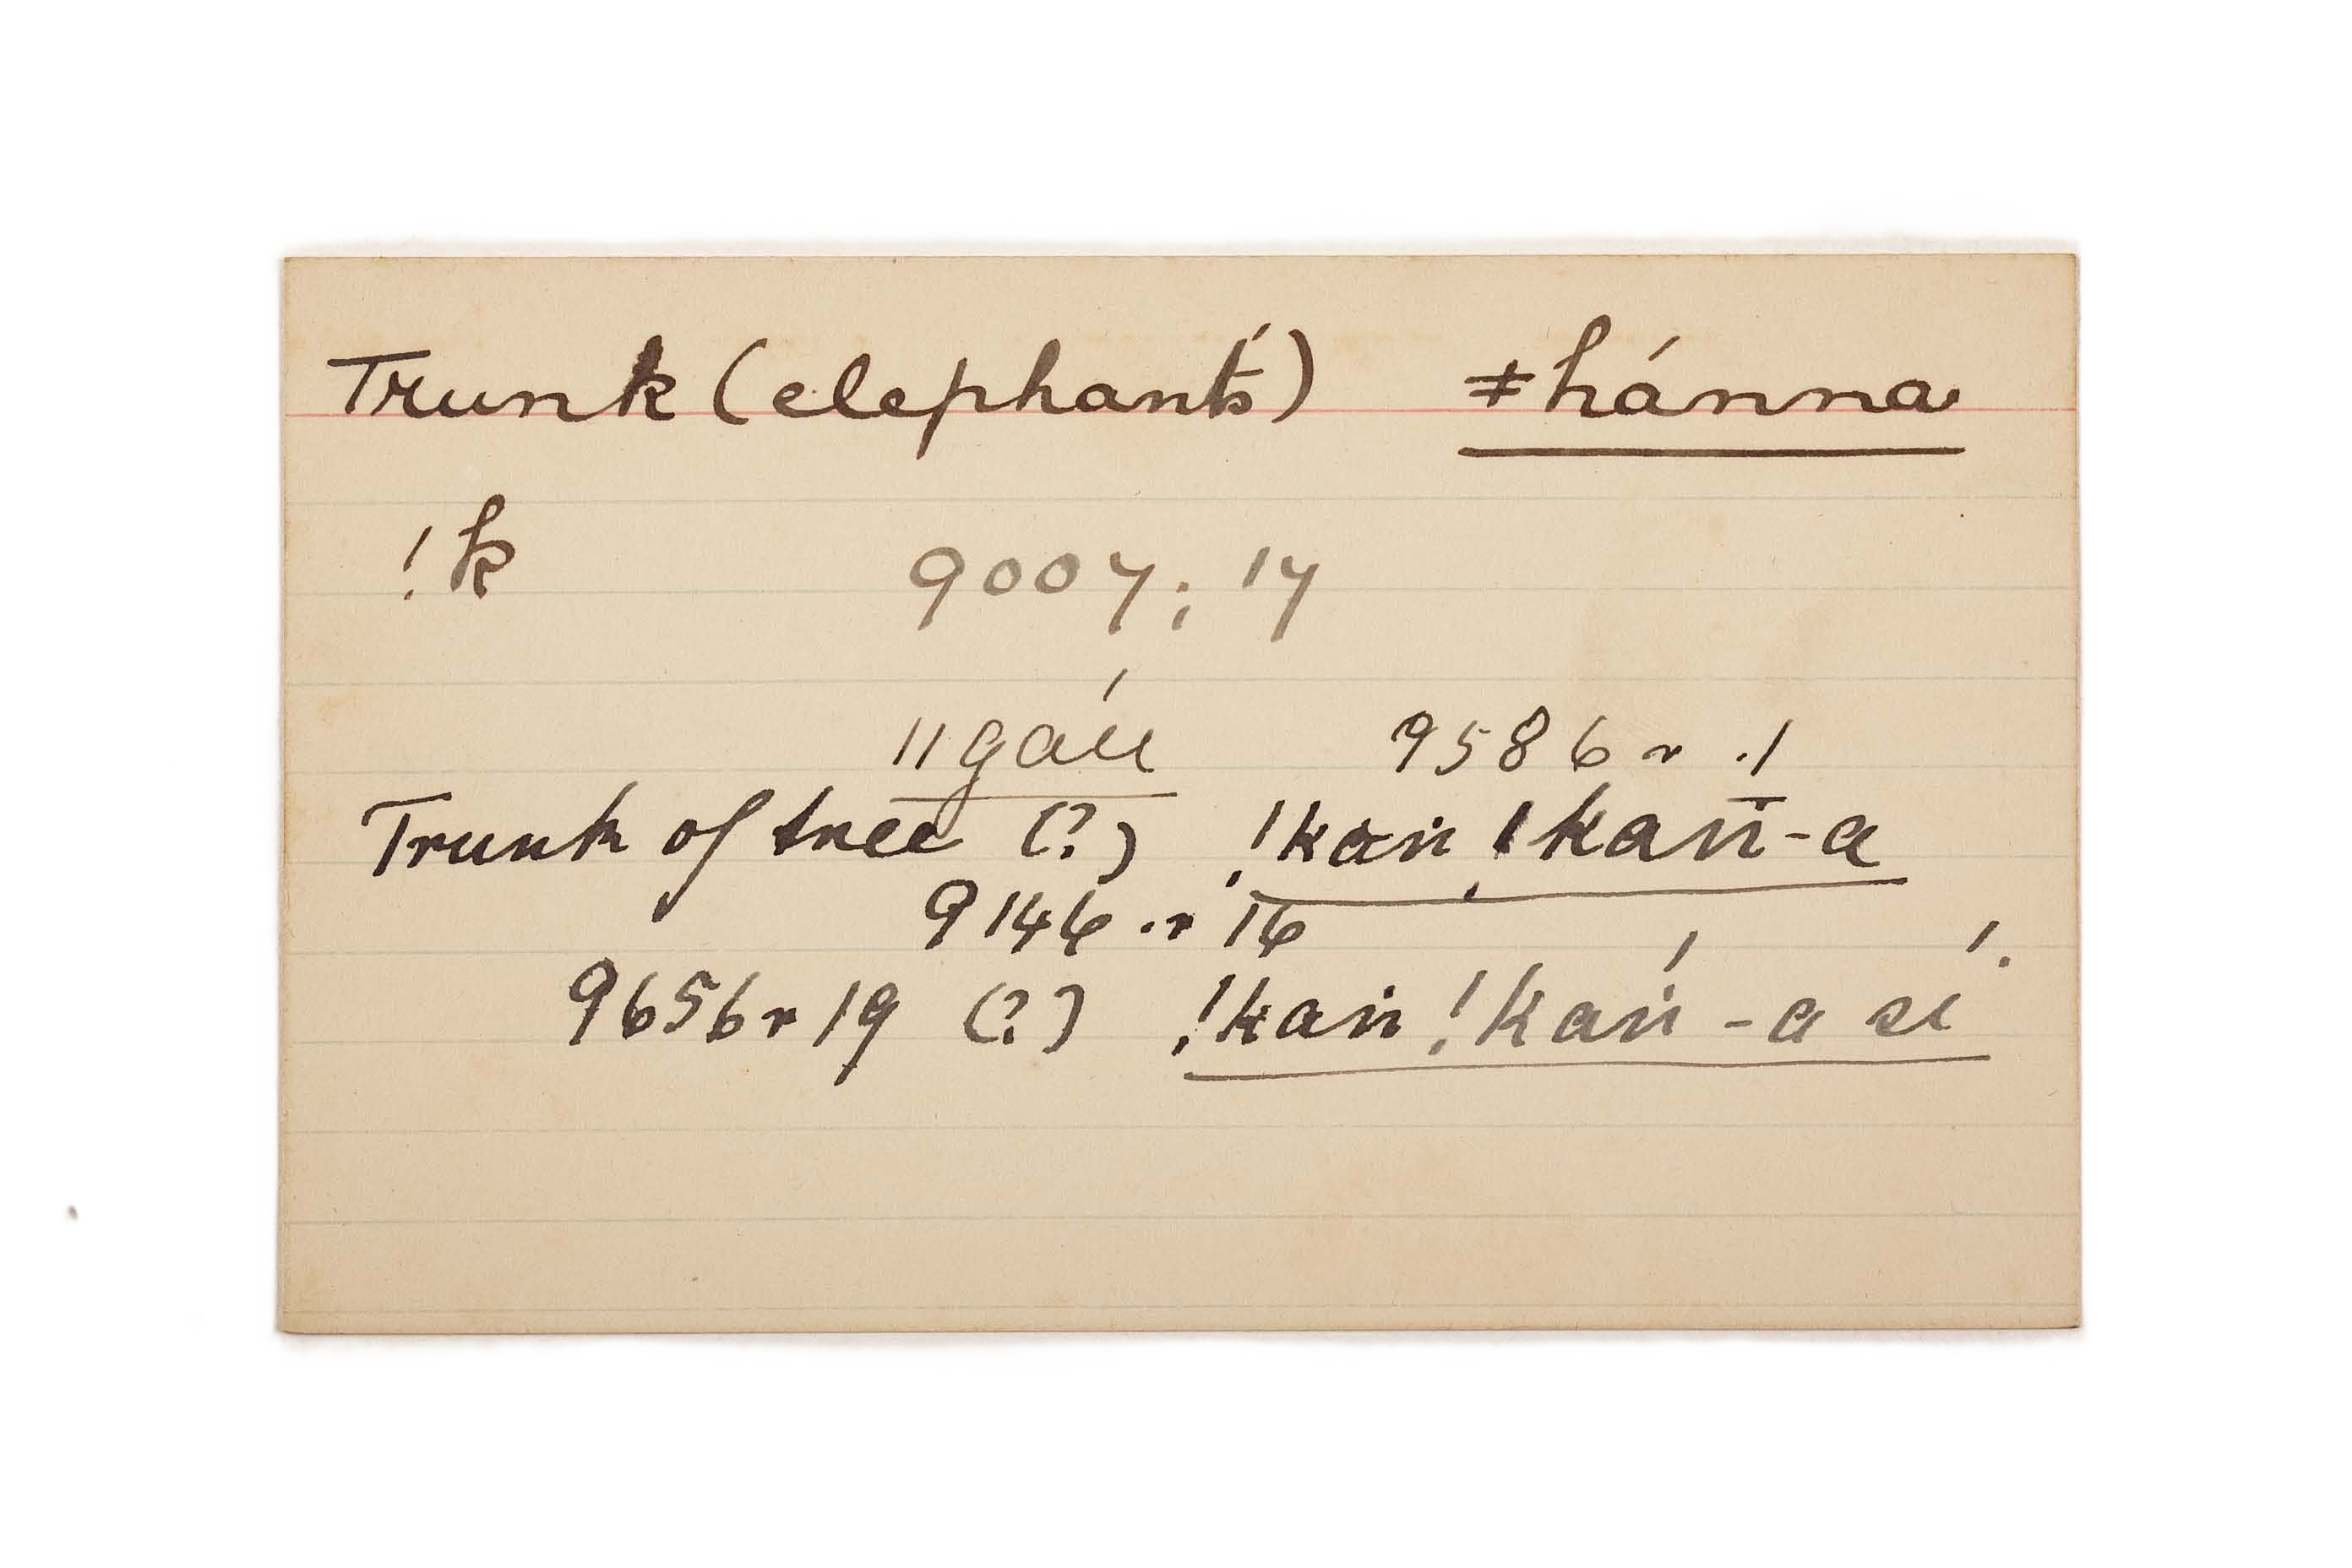 Trunk (elephant's) ǂhánna
!k 9007; 17
ǁgáu 9586 r. 1
Trunk of tree (?) !kaṅ !kaṅ-a
9146. r 16
9656 r 19 (?) !kaṅ !kaṅ́-a sí.